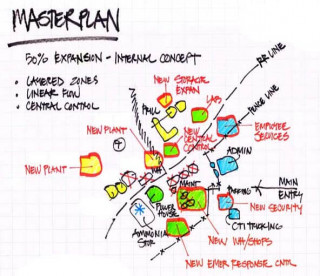 MASTERPLAN
50% EXPANSION - INTERNAL CONCEPT
• LAYERED ZONES
• LINEAR FLOW
• CENTRAL CONTROL
RR LINE
FENCE LINE
NEW STORAGE
EXPAN
PRILL
LAB
NEW PLANT
NEW
CENTRAL
CONTROL
EMPLOYEE
SERVICES
NEW PLANT
ADMIN
MAINT
MAIN
ENTRY
PARKING
POWER
HOUSE
NEW SECURITY
AMMONIA
STOR
CTI TRICKING
NEW WH/SHOPS
NEW EMER RESPONSE CNTR